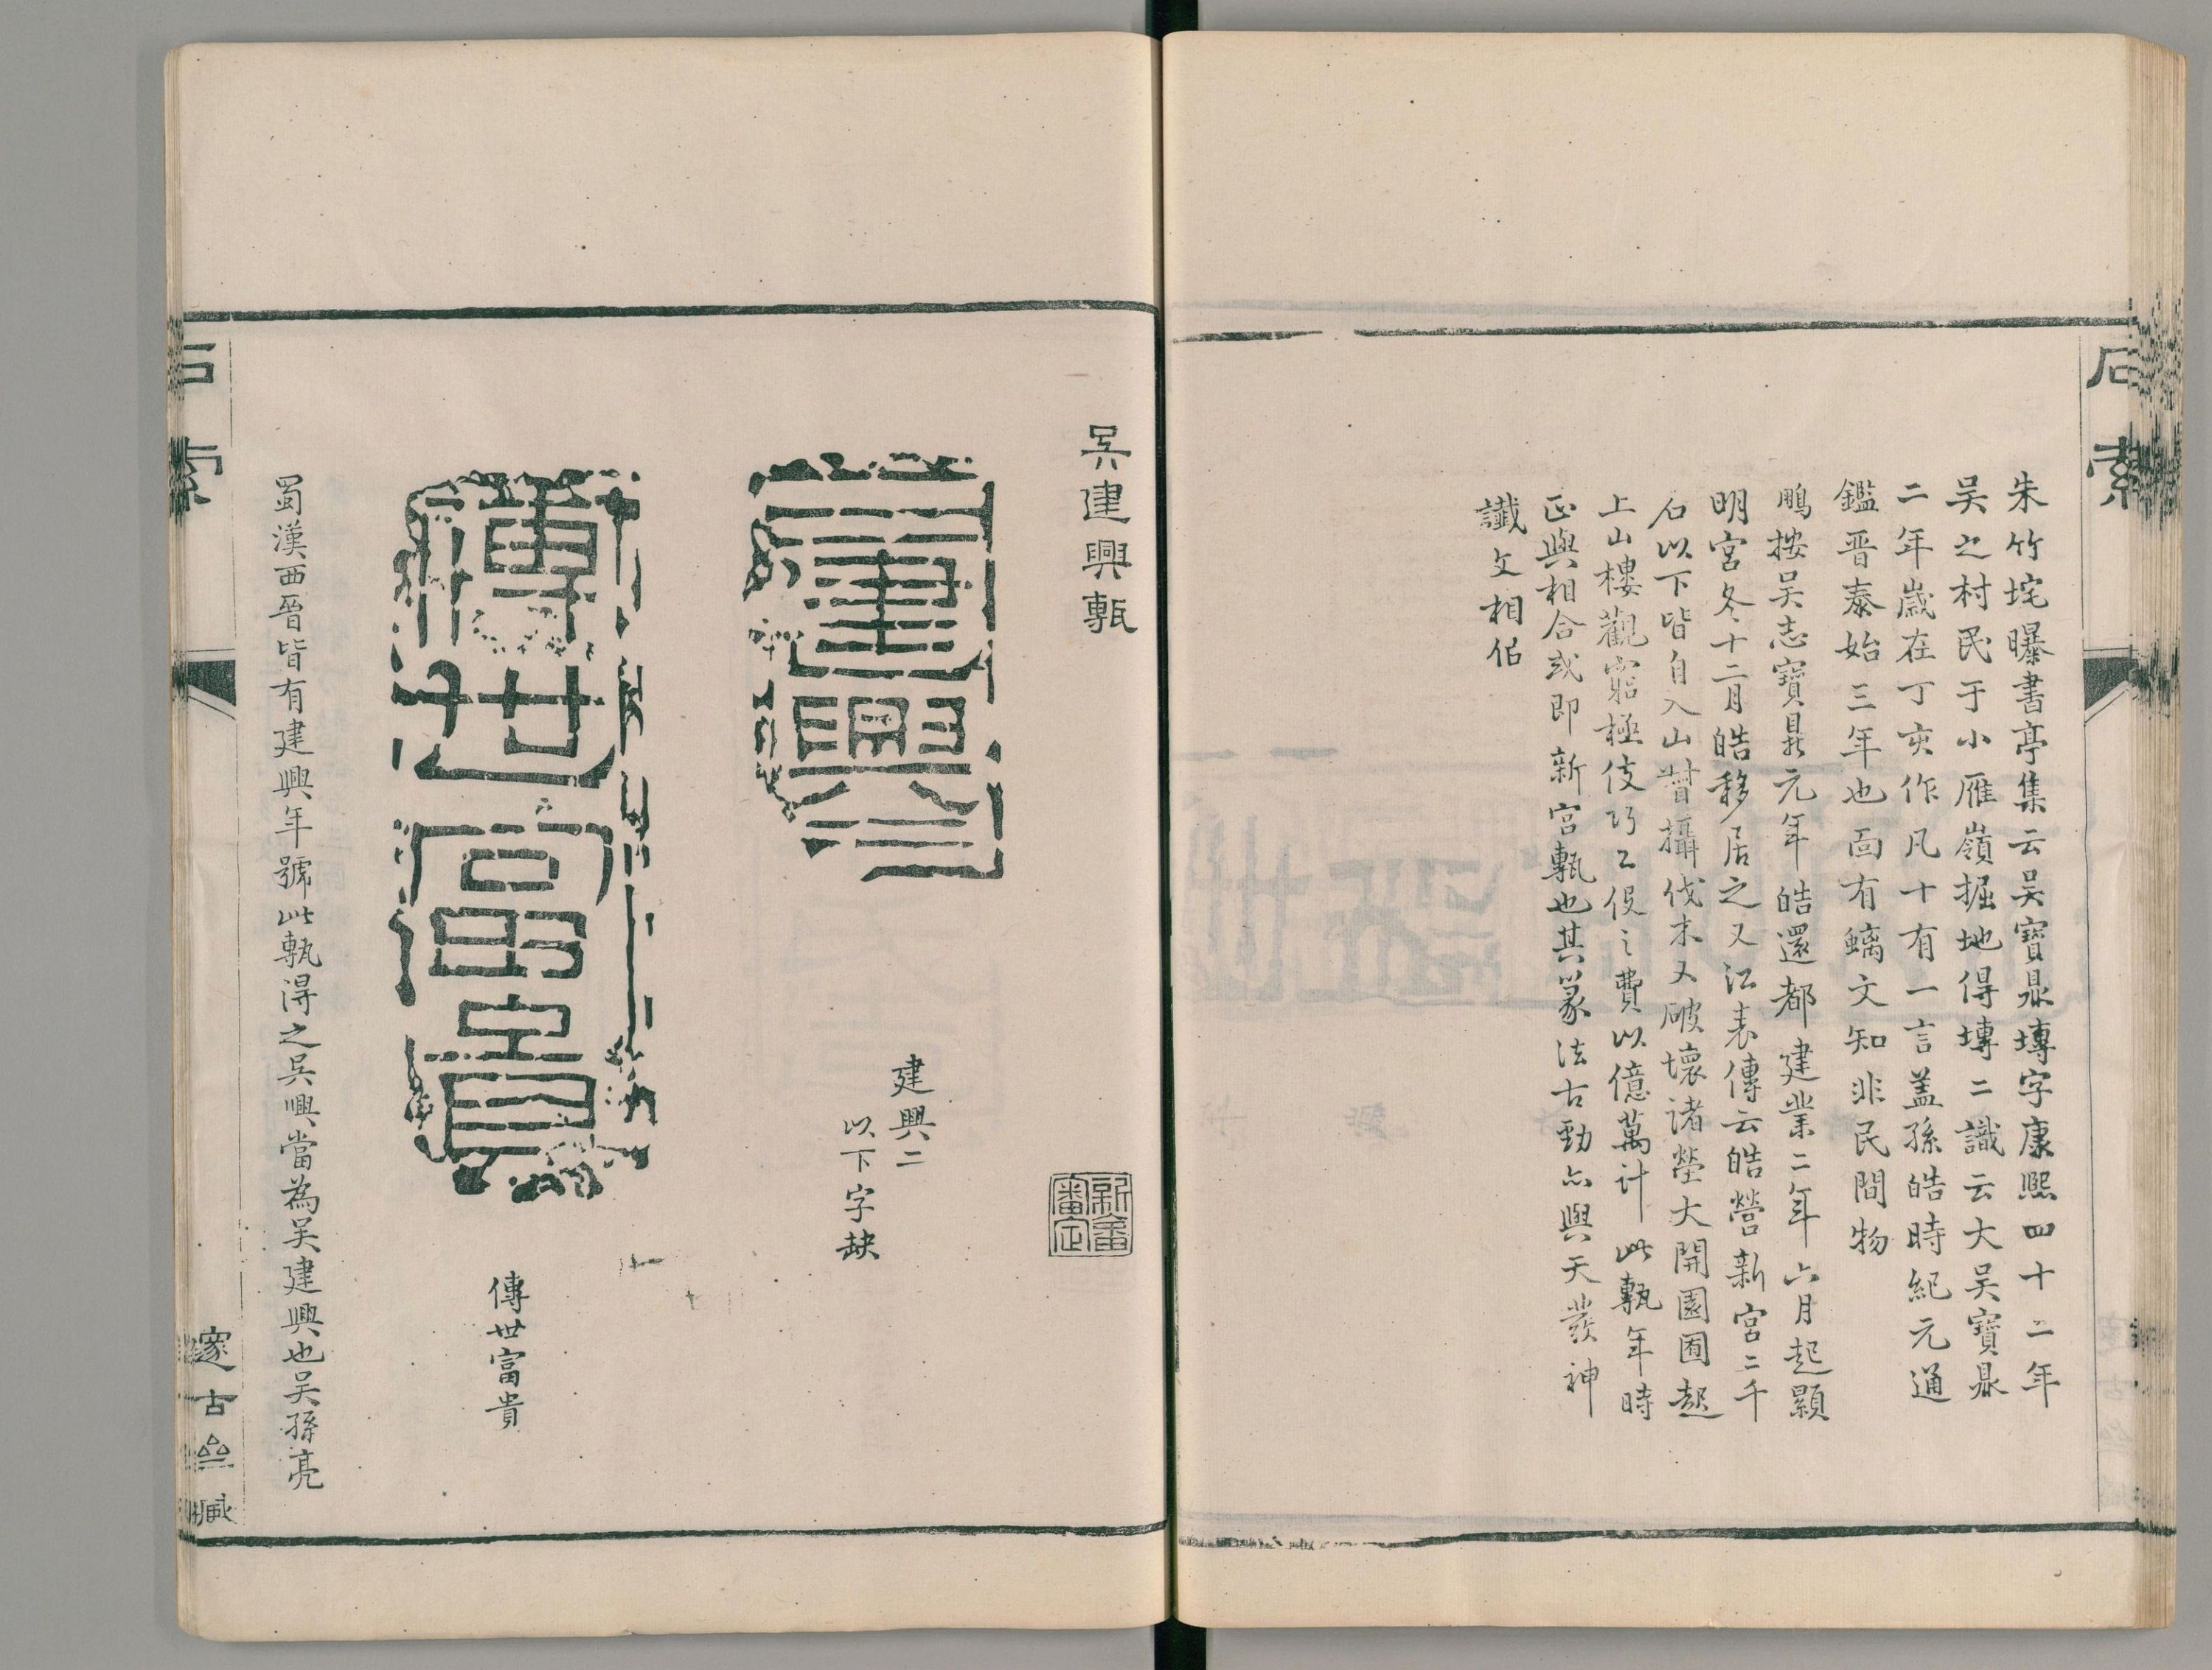 石索
朱竹垞曝書亭集云吴寶鼎塼字康熙四十二年
吴之村民于小雁嶺掘地得塼二識云大吴寶鼎
二年歲在丁亥作凡十有一言盖孫皓時紀元通
鑑晋泰始三年也面有螭文知非民間物
鵬按吴志寶鼎元年皓還都建業二年六月起顯
明宮冬十二月皓移居之又江表傳云皓營新宮二千
石以下皆自入山督攝伐木又破壞諸塋大開園囿起
上山樓觀窮極伎巧工役之費以億萬計此甎年時
正與相合或即新宮甎也其篆法古勁亦與天發神
讖文相侣
吴建興甎
新金審定
建興二
建興二
以下字缺
傳世富貴
傳世富貴
蜀漢西晉皆有建興年號此甎得之吴興當為吴建興也吴孫亮
石索
邃古𠫰臧